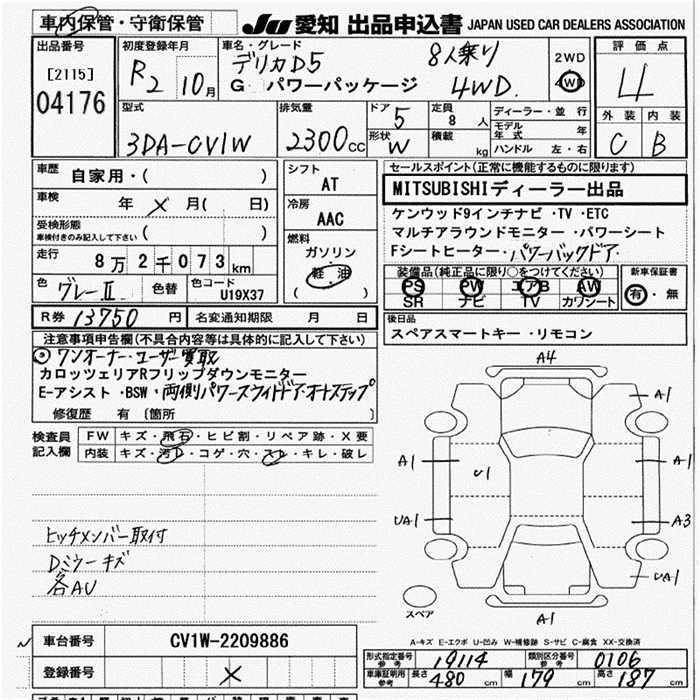 車内保管・守衛保管
JU 愛知 出品申込書 JAPAN USED CAR DEALERS ASSOCIATION
出品番号
[2115]
04176
初度登録年月
R2 10月
車名・グレード
デリカD5 8人乗り
G パワーパッケージ 4WD
2WD
4WD
評価点
4
外装 内装
C B
型式
3DA-CV1W
排気量
2300cc
ドア 5
形状 W
定員 8 人
積載 kg
ディーラー・並行
モデル年式 年
ハンドル 左・右
車歴
自家用・( )
車検
年 メ 月( 日)
受検形態
車検付きのみ記入して下さい ( )
走行
8万2千073km
色 グレーII 色替 色コード U19X37
R券 13750 円 名変通知期限 月 日
シフト
AT
冷房
AAC
燃料
ガソリン
軽油
( )
セールスポイント(正常に機能するものに限ります)
MITSUBISHIディーラー出品
ケンウッド9インチナビ・TV・ETC
マルチアラウンドモニター・パワーシート
Fシートヒーター・パワーバックドア・
装備品(純正品に限り○をつけてください)
PS PW エアB AW
SR ナビ TV カワシート
新車保証書
有・無
後日品
スペアスマートキー・リモコン
注意事項申告欄(不具合内容等は具体的に記入して下さい)
◎ワンオーナー・ユーザー買取
カロッツェリアRフリップダウンモニター
E-アシスト・BSW・両側パワースライドドア・オートステップ
修復歴 有 〔箇所 〕
検査員記入欄
FW キズ・飛石・ヒビ割・リペア跡・X要
内装 キズ・汚レ・コゲ・穴・スレ・キレ・破レ
ヒッチメンバー取付
Dミラーキズ
各AU
A4
A1
A1
U1
A1
UA1
A3
UA1
スペア
A1
A-キズ E-エクボ U-凹み W-補修跡 S-サビ C-腐食 XX-交換済
車台番号 CV1W-2209886
登録番号 メ
形式指定番号 参考 19114 類別区分番号 参考 0106
車庫証明用 参考 長さ 480 cm 幅 179 cm 高さ 187 cm